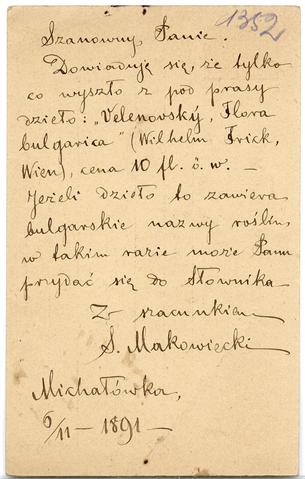 1352
Szanowny Panie.
Dowiaduję się, że tylko
co wyszło z pod prasy
dzieło: „Velenovský, Flora
bulgarica" (Wilhelm Frick,
Wien), cena 10 fl. ö. w. —
Jeżeli dzieło to zawiera
bulgarskie nazwy roślin,
w takim razie może Panu
przydać się do Słownika
Z szacunkiem
S. Makowiecki
Michałówka,
6/11 — 1891 —